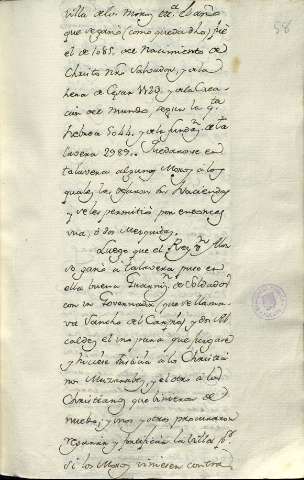 58
villa de los Moros etc.ª El año
que se ganó, como queda dho, fue
el de 1085. del Nacimiento de
Christo Nro Salvador, y de la
hera de Cesar 1123. y de la Crea-
cion del mundo, segun la q.ta
hebrea 5044. y de la fundaz.n de Ta
lavera 2989. Quedaronse en
talavera algunos Moros a los
quales les dejaron sus Haciendas
y se les permitió por entonces
una, ó dos Mezquitas.
Luego que el Rey D.n Alon
so ganó a Talavera puso en
ella buena Guarniz.n de Soldados
con su Governador, que se llama
va Sancho del Carpio, y dos Al
caldes, el uno para que juzgase
y hiciese Justicia á los Christia
nos Muzarabes, y el otro á los
Christianos que vinieron de
nuebo; y unos y otros procuraron
reparar y fortificar la Villa p.r
si los Moros viniesen contra